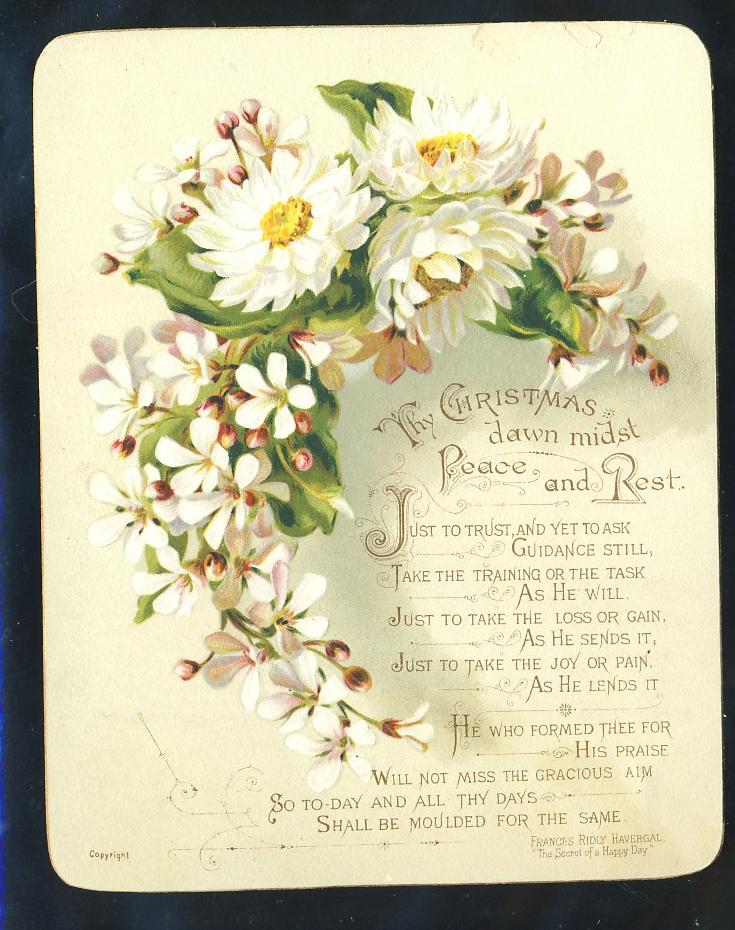 Thy CHRISTMAS
dawn midst
Peace and Rest.
JUST TO TRUST, AND YET TO ASK
GUIDANCE STILL,
TAKE THE TRAINING OR THE TASK
AS HE WILL.
JUST TO TAKE THE LOSS OR GAIN,
AS HE SENDS IT,
JUST TO TAKE THE JOY OR PAIN,
AS HE LENDS IT
HE WHO FORMED THEE FOR
HIS PRAISE
WILL NOT MISS THE GRACIOUS AIM
SO TO-DAY AND ALL THY DAYS
SHALL BE MOULDED FOR THE SAME.
FRANCES RIDLY HAVERGAL.
"The Secret of a Happy Day"
Copyright